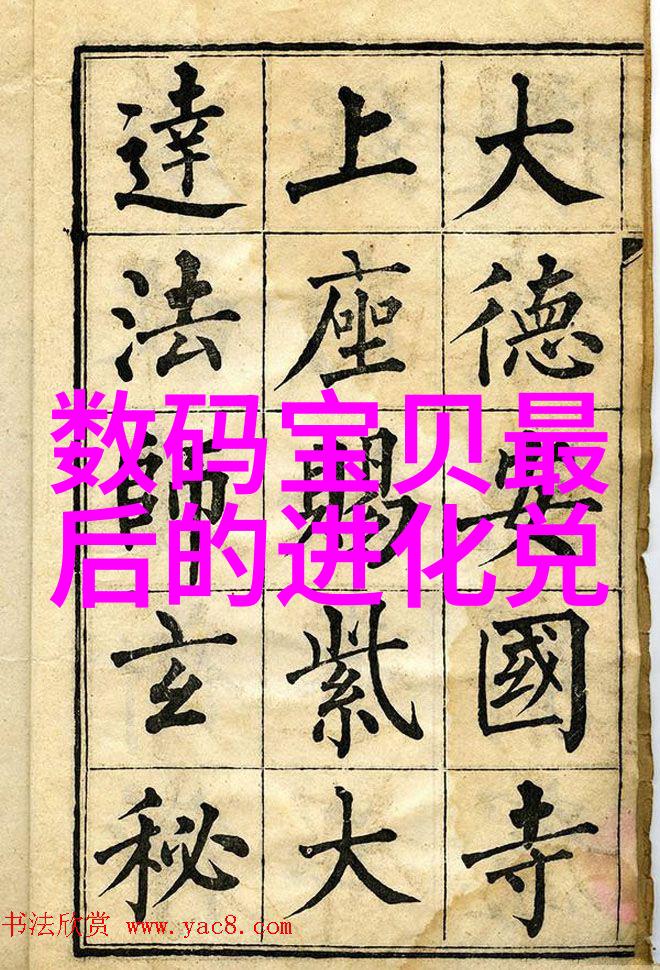 大德安國寺
上座賜紫大
達法師玄秘
数码宝贝最
后的进化兑
书法欣赏 www.yac8.com